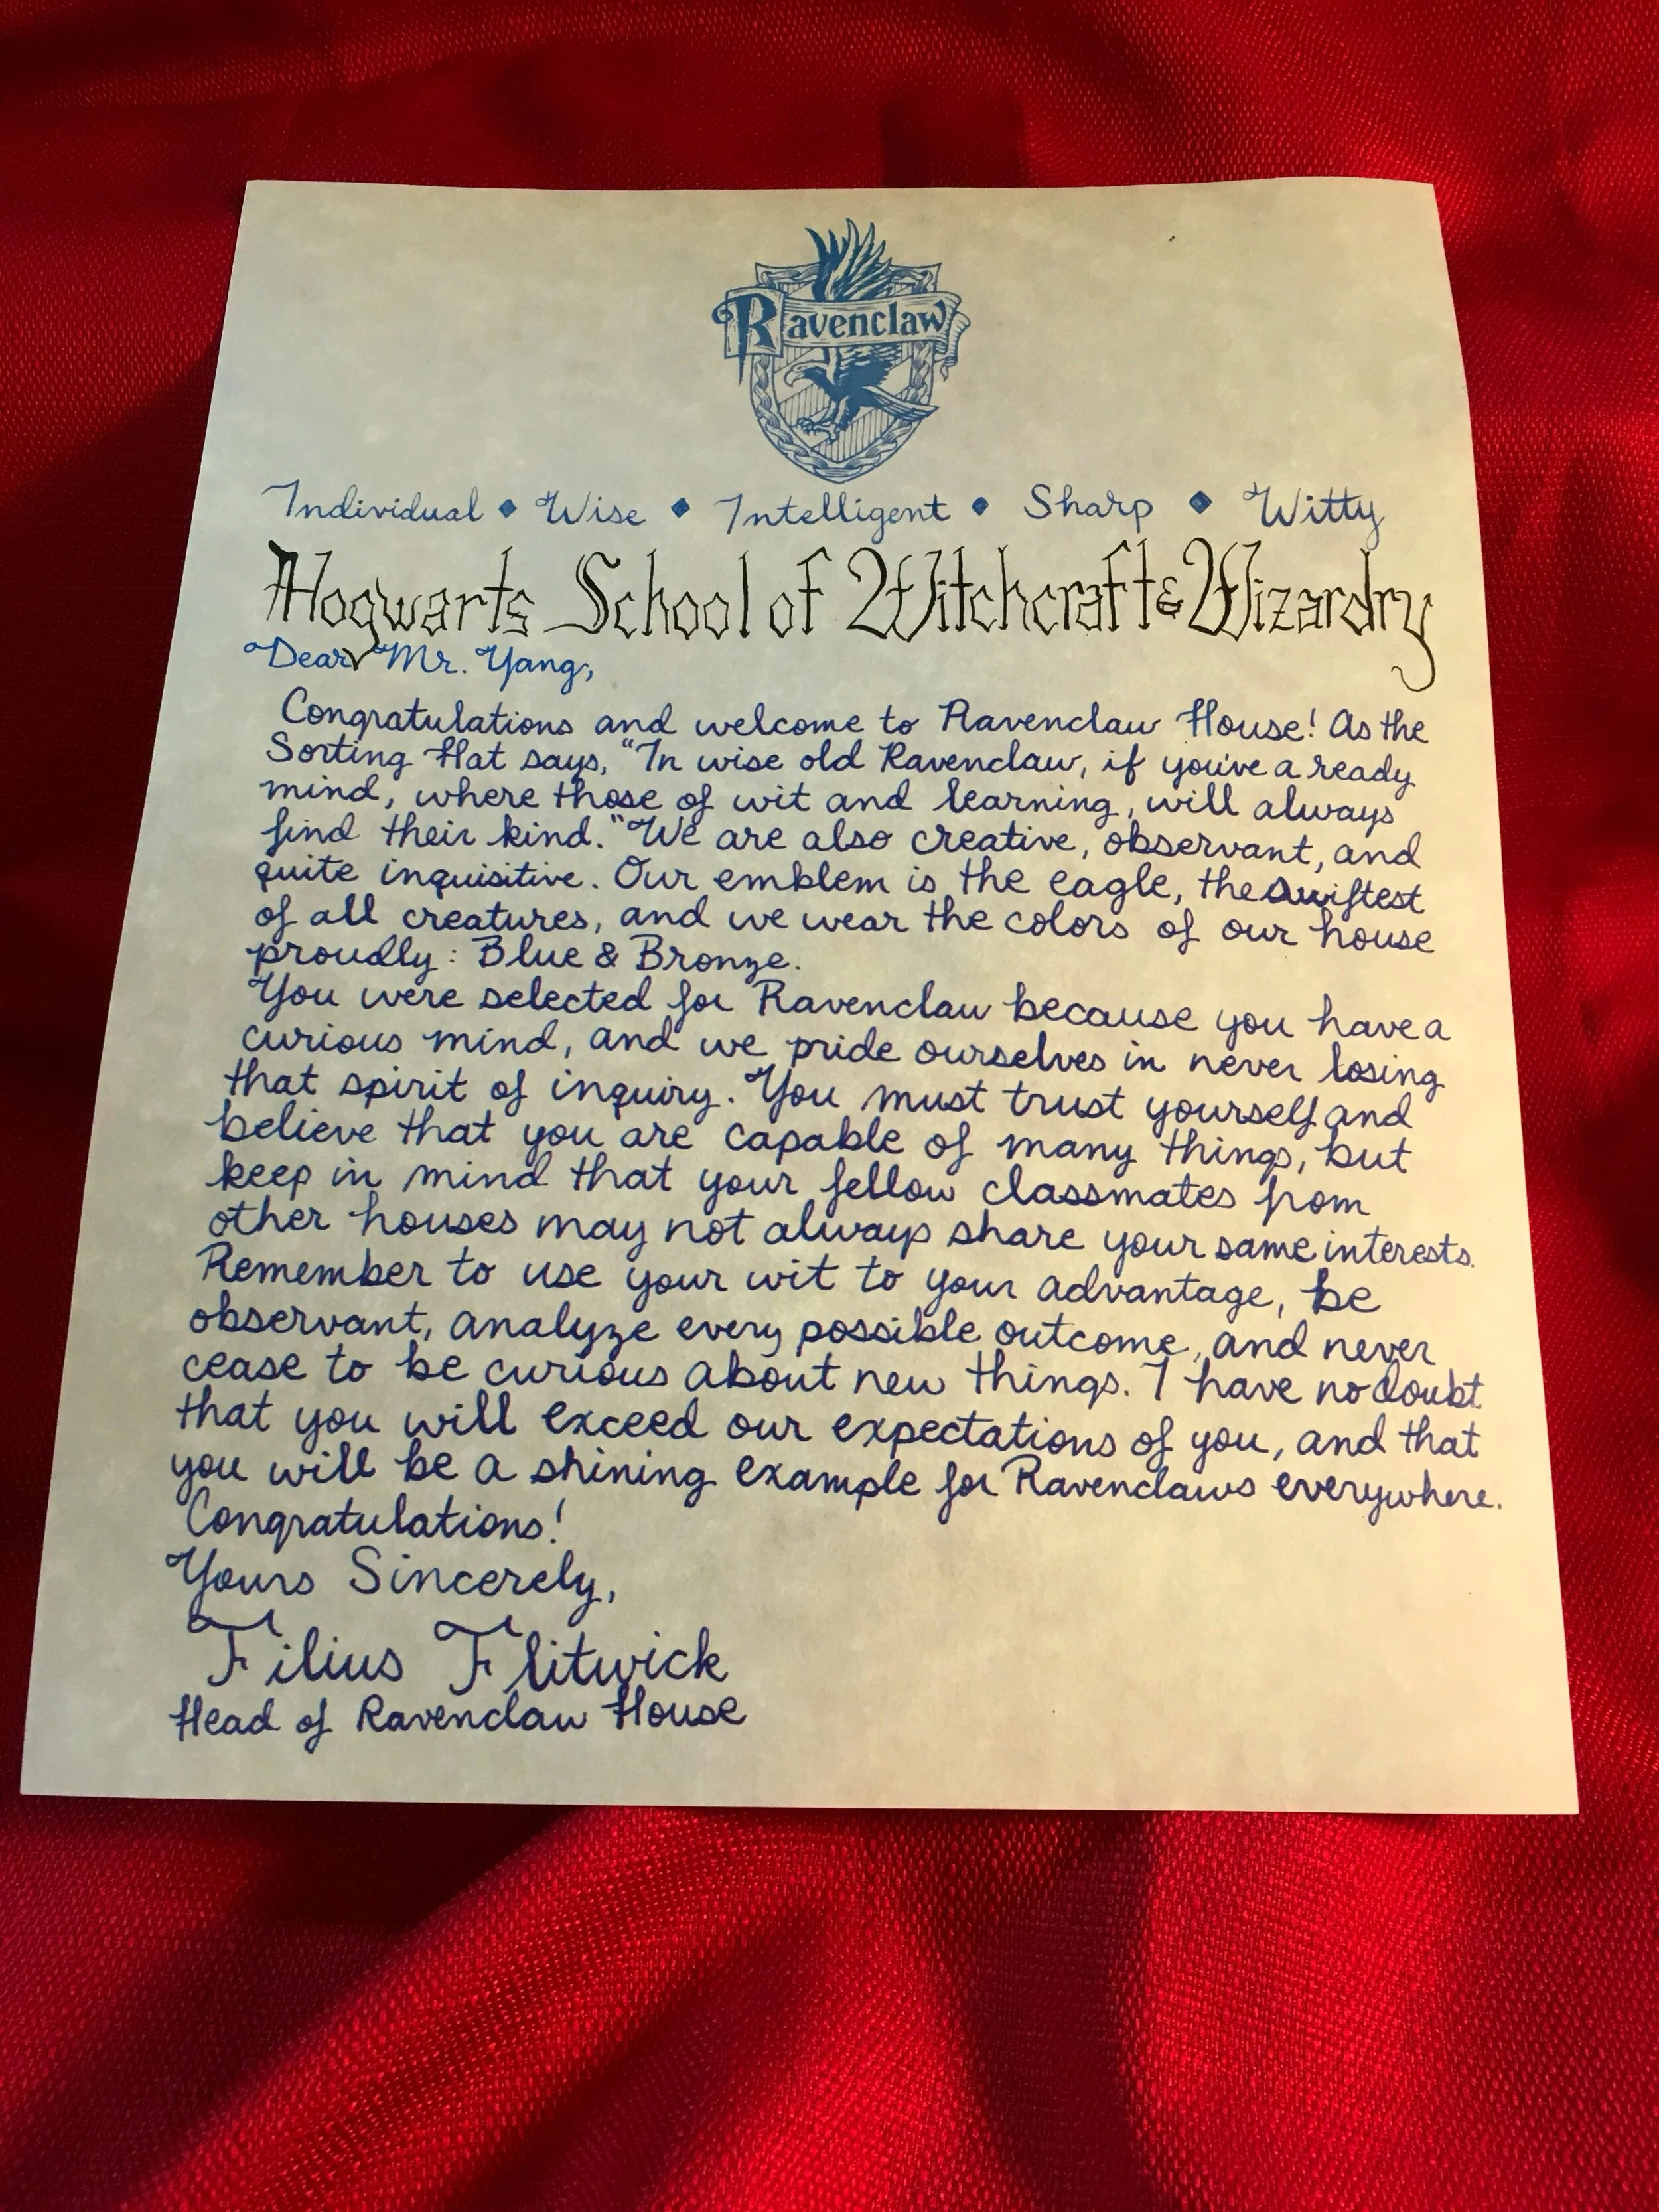 Ravenclaw
Individual ◆ Wise ◆ Intelligent ◆ Sharp ◆ Witty
Hogwarts School of Witchcraft & Wizardry
Dear Mr. Yang,
Congratulations and welcome to Ravenclaw House! As the
Sorting Hat says, "In wise old Ravenclaw, if you've a ready
mind, where those of wit and learning, will always
find their kind." We are also creative, observant, and
quite inquisitive. Our emblem is the eagle, the swiftest
of all creatures, and we wear the colors of our house
proudly: Blue & Bronze.
You were selected for Ravenclaw because you have a
curious mind, and we pride ourselves in never losing
that spirit of inquiry. You must trust yourself and
believe that you are capable of many things, but
keep in mind that your fellow classmates from
other houses may not always share your same interests.
Remember to use your wit to your advantage, be
observant, analyze every possible outcome, and never
cease to be curious about new things. I have no doubt
that you will exceed our expectations of you, and that
you will be a shining example for Ravenclaws everywhere.
Congratulations!
Yours Sincerely,
Filius Flitwick
Head of Ravenclaw House